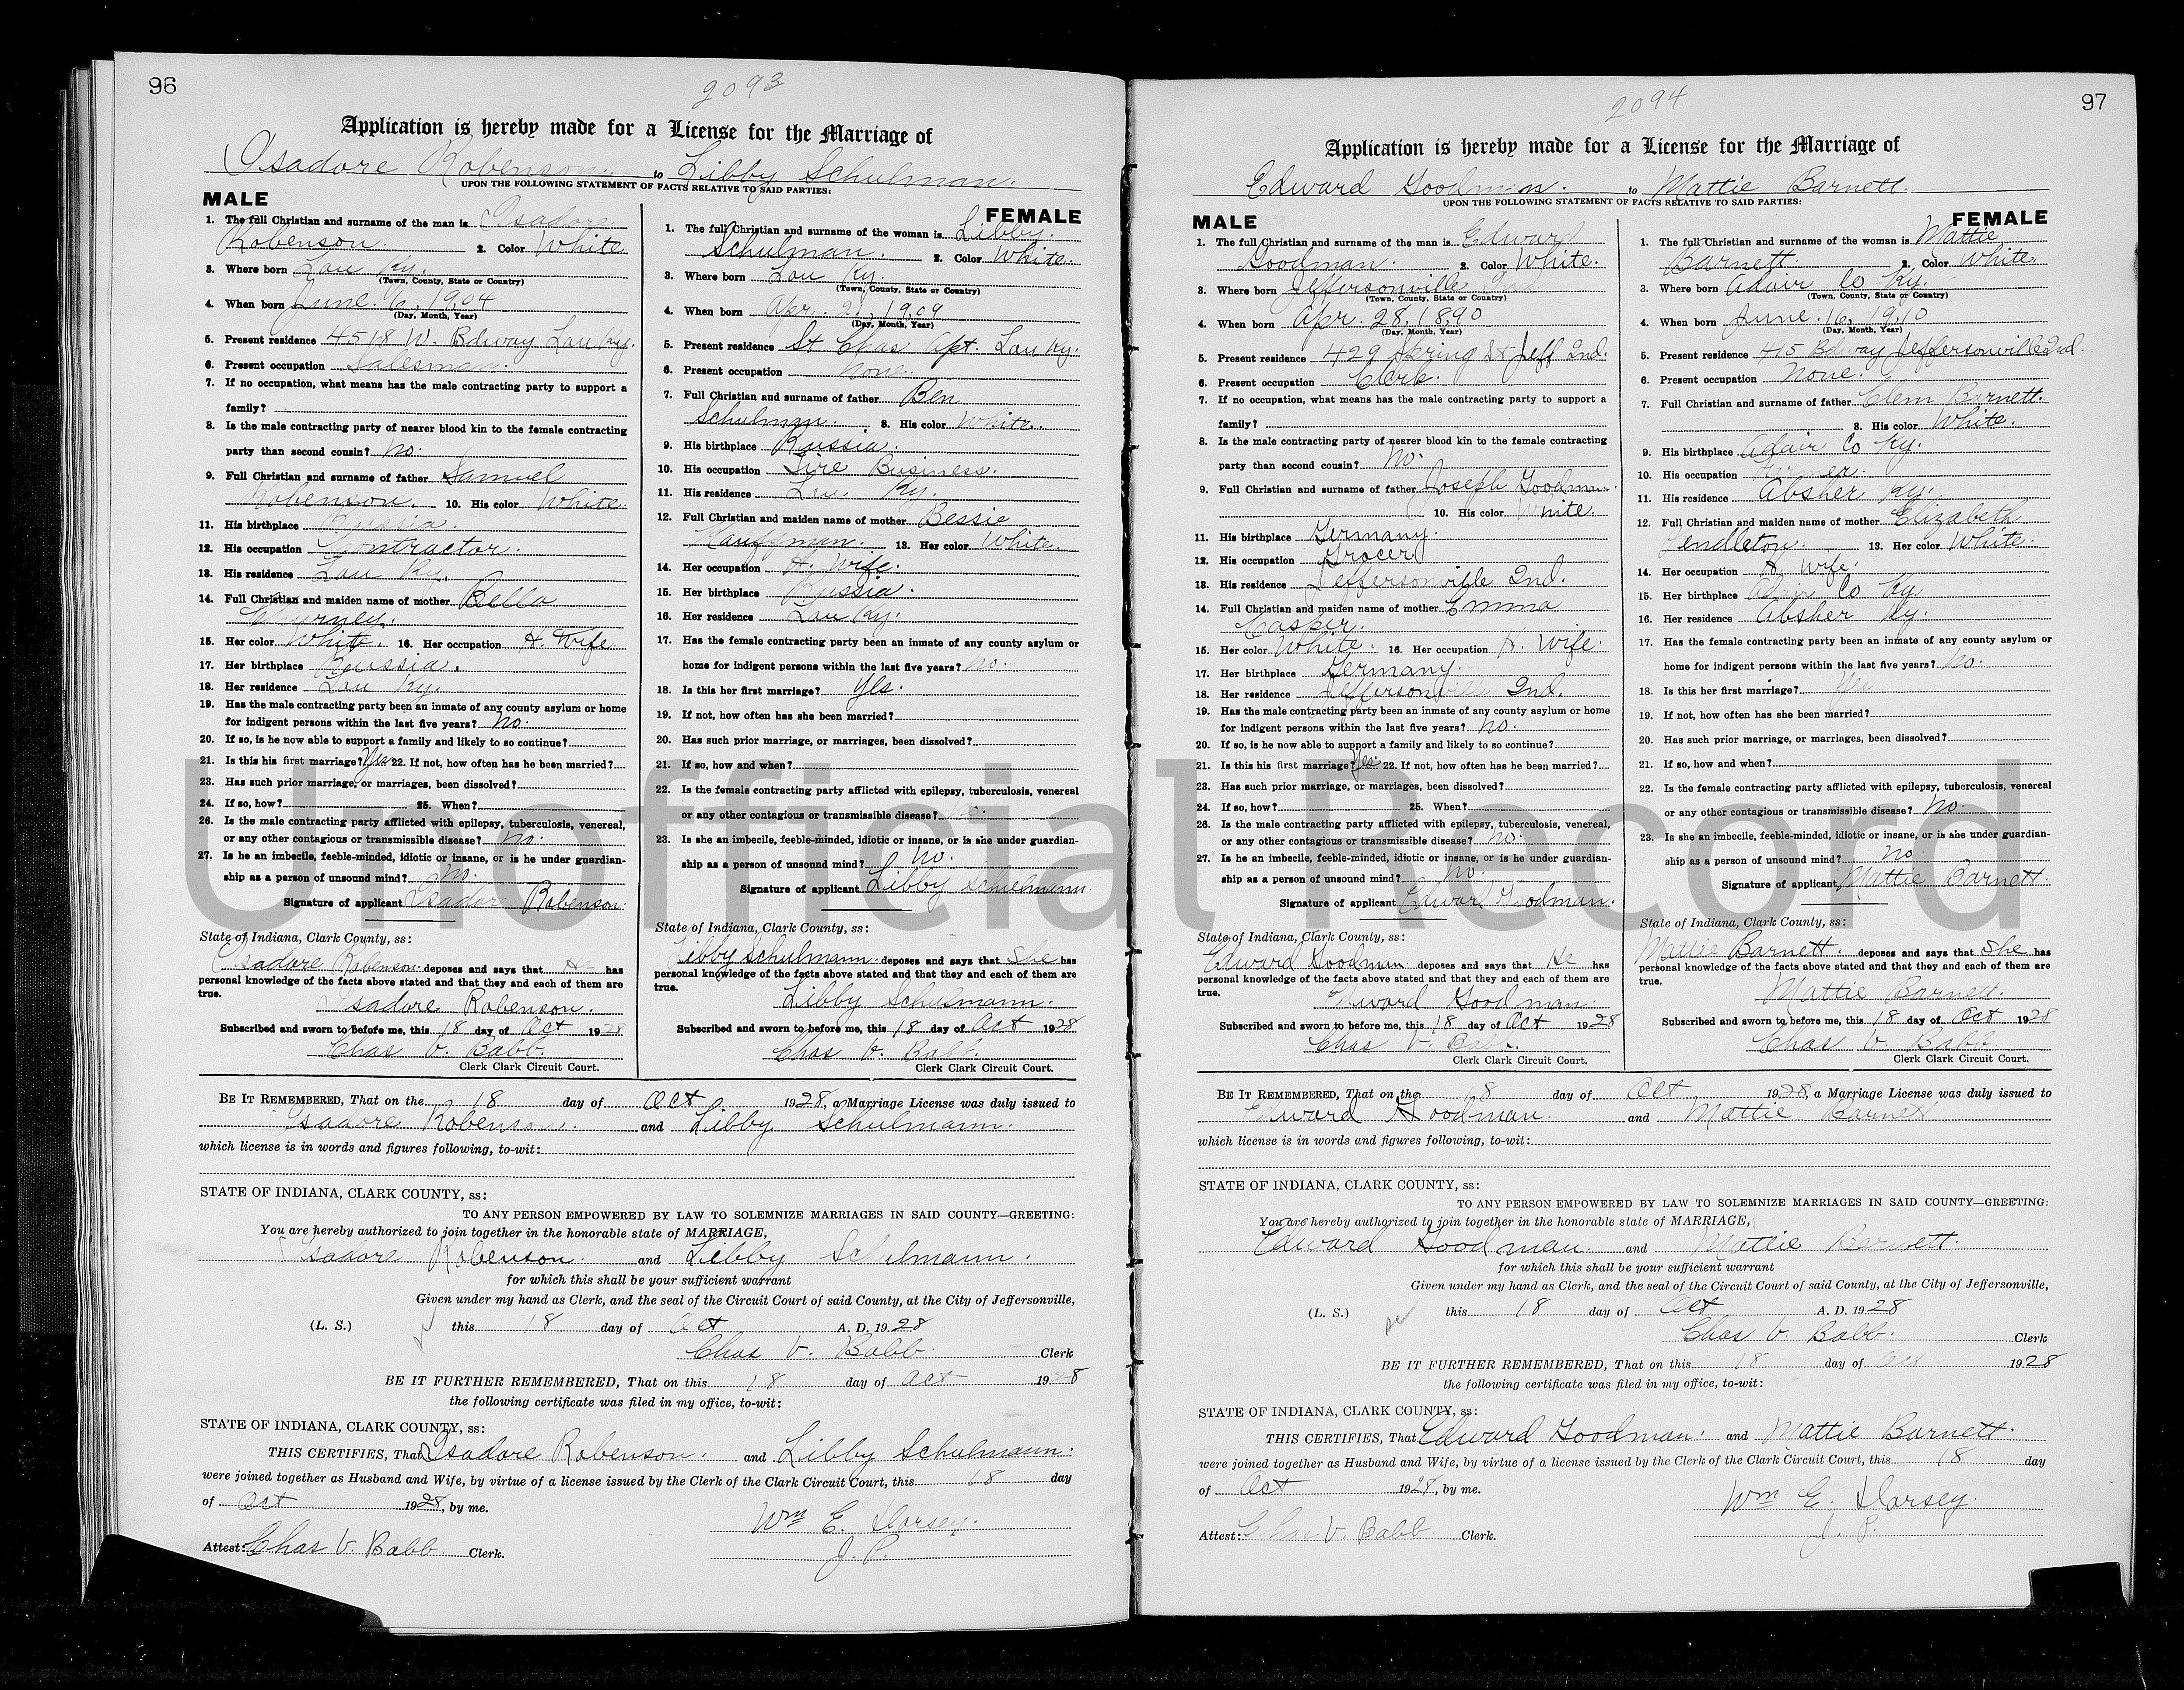 96
2093
Application is hereby made for a License for the Marriage of
Isadore Robenson to Libby Schulman.
UPON THE FOLLOWING STATEMENT OF FACTS RELATIVE TO SAID PARTIES:
MALE
1. The full Christian and surname of the man is Isadore
Robenson. 2. Color White
3. Where born Lou Ky.
(Town, County, State or Country)
4. When born June. 6, 1904
(Day, Month, Year)
5. Present residence 4518 W. Bdway Lou Ky.
6. Present occupation Salesman.
7. If no occupation, what means has the male contracting party to support a
family?
8. Is the male contracting party of nearer blood kin to the female contracting
party than second cousin? No.
9. Full Christian and surname of father Samuel
Robenson. 10. His color White.
11. His birthplace Russia.
12. His occupation Contractor.
13. His residence Lou Ky.
14. Full Christian and maiden name of mother Bella
15. Her color White. 16. Her occupation H. Wife
17. Her birthplace Russia.
18. Her residence Lou Ky.
19. Has the male contracting party been an inmate of any county asylum or home
for indigent persons within the last five years? No.
20. If so, is he now able to support a family and likely to so continue?
21. Is this his first marriage? Yes 22. If not, how often has he been married?
23. Has such prior marriage, or marriages, been dissolved?
24. If so, how? 25. When?
26. Is the male contracting party afflicted with epilepsy, tuberculosis, venereal,
or any other contagious or transmissible disease? No.
27. Is he an imbecile, feeble-minded, idiotic or insane, or is he under guardian-
ship as a person of unsound mind? No.
Signature of applicant Isadore Robenson.
State of Indiana, Clark County, ss:
Isadore Robenson. deposes and says that He has
personal knowledge of the facts above stated and that they and each of them are
true.
Isadore Robenson.
Subscribed and sworn to before me, this 18 day of Oct 1928
Chas V. Babb.
Clerk Clark Circuit Court.
FEMALE
1. The full Christian and surname of the woman is Libby.
Schulman. 2. Color White.
3. Where born Lou Ky.
(Town, County, State or Country)
4. When born Apr. 1909
(Day, Month, Year)
5. Present residence St Chas. Apt. Lou Ky.
6. Present occupation None.
7. Full Christian and surname of father Ben
Schulman. 8. His color White.
9. His birthplace Russia.
10. His occupation Tire Business.
11. His residence Lou. Ky.
12. Full Christian and maiden name of mother Bessie
Kauffman. 13. Her color White.
14. Her occupation H. Wife.
15. Her birthplace Russia.
16. Her residence Lou Ky.
17. Has the female contracting party been an inmate of any county asylum or
home for indigent persons within the last five years? No.
18. Is this her first marriage? Yes.
19. If not, how often has she been married?
20. Has such prior marriage, or marriages, been dissolved?
21. If so, how and when?
22. Is the female contracting party afflicted with epilepsy, tuberculosis, venereal
or any other contagious or transmissible disease? No.
23. Is she an imbecile, feeble-minded, idiotic or insane, or is she under guardian-
ship as a person of unsound mind? No.
Signature of applicant Libby Schulmann.
State of Indiana, Clark County, ss:
Libby Schulmann. deposes and says that She has
personal knowledge of the facts above stated and that they and each of them are
true.
Libby Schulmann.
Subscribed and sworn to before me, this 18 day of Oct 1928
Chas V. Babb.
Clerk Clark Circuit Court.
BE IT REMEMBERED, That on the 18 day of Oct 1928, a Marriage License was duly issued to
Isadore Robenson. and Libby Schulmann.
which license is in words and figures following, to-wit:
STATE OF INDIANA, CLARK COUNTY, ss:
TO ANY PERSON EMPOWERED BY LAW TO SOLEMNIZE MARRIAGES IN SAID COUNTY—GREETING:
You are hereby authorized to join together in the honorable state of MARRIAGE,
Isadore Robenson. and Libby Schulmann.
for which this shall be your sufficient warrant
Given under my hand as Clerk, and the seal of the Circuit Court of said County, at the City of Jeffersonville,
(L. S.) this 18 day of Oct A. D. 1928
Chas V. Babb. Clerk
BE IT FURTHER REMEMBERED, That on this 18 day of Oct 1928
the following certificate was filed in my office, to-wit:
STATE OF INDIANA, CLARK COUNTY, ss:
THIS CERTIFIES, That Isadore Robenson. and Libby Schulmann.
were joined together as Husband and Wife, by virtue of a license issued by the Clerk of the Clark Circuit Court, this 18 day
of Oct 1928, by me.
Wm E. Dorsey.
J. P.
Attest: Chas V. Babb Clerk.
97
2094
Application is hereby made for a License for the Marriage of
Edward Goodman. to Mattie Barnett.
UPON THE FOLLOWING STATEMENT OF FACTS RELATIVE TO SAID PARTIES:
MALE
1. The full Christian and surname of the man is Edward
Goodman. 2. Color White.
3. Where born Jeffersonville Ind
(Town, County, State or Country)
4. When born Apr. 28, 1890
(Day, Month, Year)
5. Present residence 429 Spring St Jeff Ind.
6. Present occupation Clerk.
7. If no occupation, what means has the male contracting party to support a
family?
8. Is the male contracting party of nearer blood kin to the female contracting
party than second cousin? No.
9. Full Christian and surname of father Joseph Goodman
10. His color White.
11. His birthplace Germany.
12. His occupation Grocer
13. His residence Jeffersonville Ind.
14. Full Christian and maiden name of mother Emma
Casper.
15. Her color White. 16. Her occupation H. Wife.
17. Her birthplace Germany.
18. Her residence Jeffersonville Ind.
19. Has the male contracting party been an inmate of any county asylum or home
for indigent persons within the last five years? No.
20. If so, is he now able to support a family and likely to so continue?
21. Is this his first marriage? Yes. 22. If not, how often has he been married?
23. Has such prior marriage, or marriages, been dissolved?
24. If so, how? 25. When?
26. Is the male contracting party afflicted with epilepsy, tuberculosis, venereal,
or any other contagious or transmissible disease? No.
27. Is he an imbecile, feeble-minded, idiotic or insane, or is he under guardian-
ship as a person of unsound mind? No.
Signature of applicant Edward Goodman.
State of Indiana, Clark County, ss:
Edward Goodman deposes and says that He has
personal knowledge of the facts above stated and that they and each of them are
true.
Edward Goodman.
Subscribed and sworn to before me, this 18 day of Oct 1928
Chas V. Babb.
Clerk Clark Circuit Court.
FEMALE
1. The full Christian and surname of the woman is Mattie
Barnett. 2. Color White.
3. Where born Adair Co Ky.
(Town, County, State or Country)
4. When born June. 16, 1910
(Day, Month, Year)
5. Present residence 415 Bdway Jeffersonville Ind.
6. Present occupation None.
7. Full Christian and surname of father Clem Barnett.
8. His color White.
9. His birthplace Adair Co Ky.
10. His occupation Farmer.
11. His residence Absher Ky.
12. Full Christian and maiden name of mother Elizabeth
Pendleton. 13. Her color White.
14. Her occupation H. Wife.
15. Her birthplace Adair Co Ky
16. Her residence Absher Ky.
17. Has the female contracting party been an inmate of any county asylum or
home for indigent persons within the last five years? No.
18. Is this her first marriage? Yes
19. If not, how often has she been married?
20. Has such prior marriage, or marriages, been dissolved?
21. If so, how and when?
22. Is the female contracting party afflicted with epilepsy, tuberculosis, venereal
or any other contagious or transmissible disease? No.
23. Is she an imbecile, feeble-minded, idiotic or insane, or is she under guardian-
ship as a person of unsound mind? No
Signature of applicant Mattie Barnett.
State of Indiana, Clark County, ss:
Mattie Barnett. deposes and says that She has
personal knowledge of the facts above stated and that they and each of them are
true.
Mattie Barnett.
Subscribed and sworn to before me, this 18 day of Oct 1928
Chas V. Babb
Clerk Clark Circuit Court.
BE IT REMEMBERED, That on the 18 day of Oct 1928, a Marriage License was duly issued to
Edward Goodman. and Mattie Barnett
which license is in words and figures following, to-wit:
STATE OF INDIANA, CLARK COUNTY, ss:
TO ANY PERSON EMPOWERED BY LAW TO SOLEMNIZE MARRIAGES IN SAID COUNTY—GREETING:
You are hereby authorized to join together in the honorable state of MARRIAGE,
Edward Goodman. and Mattie Barnett.
for which this shall be your sufficient warrant
Given under my hand as Clerk, and the seal of the Circuit Court of said County, at the City of Jeffersonville,
(L. S.) this 18 day of Oct A. D. 1928
Chas V. Babb. Clerk
BE IT FURTHER REMEMBERED, That on this 18 day of Oct 1928
the following certificate was filed in my office, to-wit:
STATE OF INDIANA, CLARK COUNTY, ss:
THIS CERTIFIES, That Edward Goodman. and Mattie Barnett.
were joined together as Husband and Wife, by virtue of a license issued by the Clerk of the Clark Circuit Court, this 18 day
of Oct 1928, by me.
Wm E. Dorsey.
J. P.
Attest: Chas V. Babb Clerk.
Unofficial Record